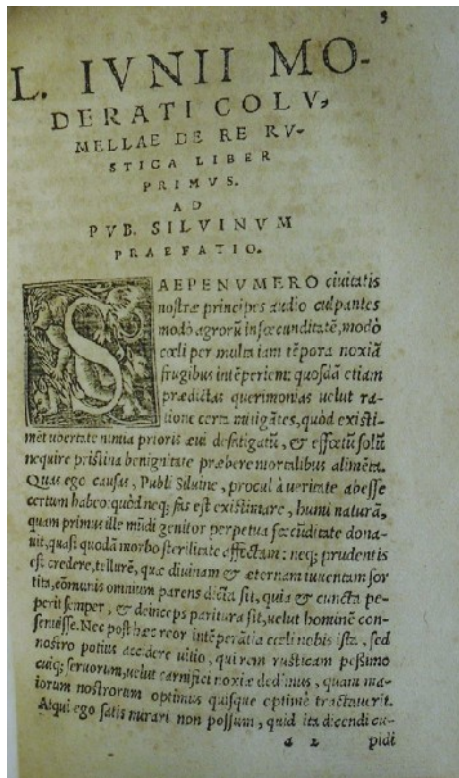 3
L. IVNII MO-
DERATI COLV,
MELLAE DE RE RV-
STICA LIBER
PRIMVS.
AD
PVB. SILVINVM
PRAEFATIO.
SAEPENVMERO ciuitatis
nostræ principes audio culpantes
modò agrorū infœcunditatē, modò
cœli per multa iam tēpora noxiā
frugibus intēperiem: quosdā etiam
prædictas querimonias uelut ra-
tione certa mitigātes, quòd existi-
mēt ubertate nimia prioris æui defatigatū, & effœtū solū
nequire pristina benignitate præbere mortalibus alimēta.
Quas ego causas, Publi Siluine, procul à ueritate abesse
certum habeo: quòd neq; fas est existimare, humi naturā,
quam primus ille mūdi genitor perpetua fœcūditate dona-
uit, quasi quodā morbo sterilitate affectam: neq; prudentis
est credere, tellurē, quæ diuinam & æternam iuuentam sor
tita, cōmunis omnium parens dicta sit, quia & cuncta pe-
perit semper, & deinceps paritura sit, uelut hominē con-
senuisse. Nec post hæc reor intēperātia cœli nobis ista, sed
nostro potius accidere uitio, qui rem rusticam pessimo
cuiq; seruorum, uelut carnifici noxiæ dedimus, quam ma-
iorum nostrorum optimus quisque optimè tractauerit.
Atqui ego satis mirari non possum, quid ita dicendi cu-
a 2 pidi